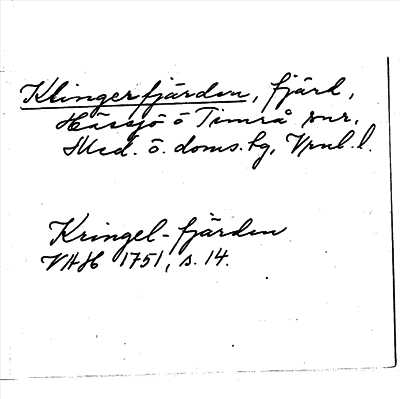 Klingerfjärden, fjärd,
Hässjö o Timrå snr,
Med. ö. doms.hg, Vrnl.l.
Kringel-fjärden
VHH 1751, s. 14.